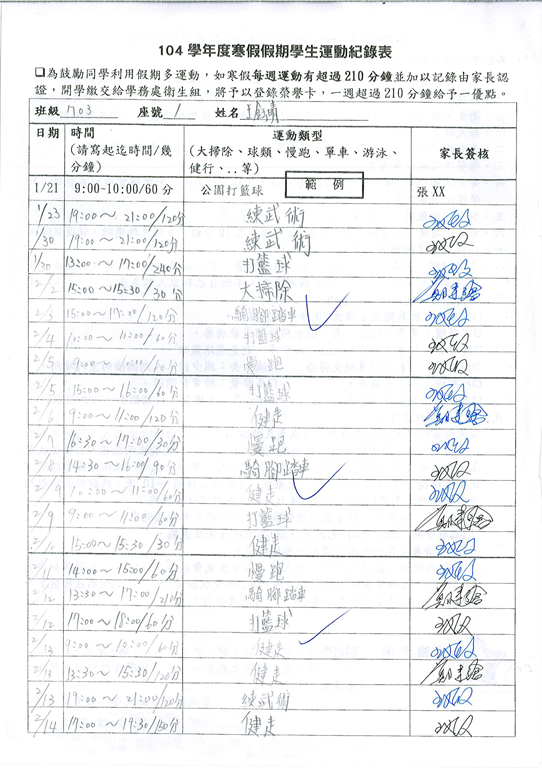 104 學年度寒假假期學生運動紀錄表
□為鼓勵同學利用假期多運動，如寒假每週運動有超過 210 分鐘並加以記錄由家長認
證，開學繳交給學務處衛生組，將予以登錄榮譽卡，一週超過 210 分鐘給予一優點。
班級 703 座號 1 姓名
日期 時間 (請寫起迄時間/幾分鐘) 運動類型 (大掃除、球類、慢跑、單車、游泳、健行、..等) 家長簽核
1/21 9:00~10:00/60 分 公園打籃球 範例 張 XX
1/23 19:00~21:00/120分 練武術
1/30 19:00~21:00/120分 練武術
1/30 13:00~17:00/240分 打籃球
2/2 15:00~15:30/30分 大掃除
2/3 15:00~17:00/120分 騎腳踏車
2/4 10:00~11:00/60分 打籃球
2/5 9:00~10:00/60分 慢跑
2/5 15:00~16:00/60分 打籃球
2/6 9:00~11:00/120分 健走
2/7 16:30~17:00/30分 慢跑
2/8 14:30~16:00/90分 騎腳踏車
2/9 10:00~11:00/60分 健走
2/9 9:00~11:00/60分 打籃球
2/10 15:00~15:30/30分 健走
2/11 14:00~15:00/60分 慢跑
2/12 13:30~17:00/210分 騎腳踏車
2/12 17:00~18:00/60分 打籃球
2/13 9:00~10:00/60分 健走
2/13 13:30~15:30/120分 健走
2/13 19:00~21:00/120分 練武術
2/14 17:00~19:30/150分 健走